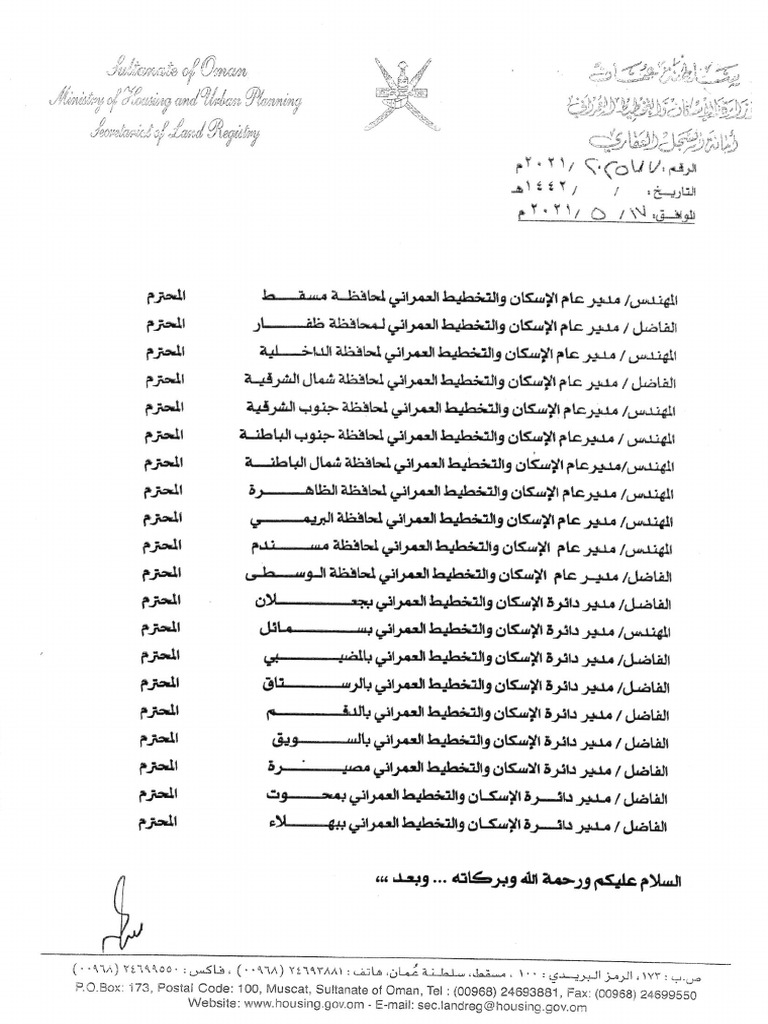 Sultanate of Oman
Ministry of Housing and Urban Planning
Secretariat of Land Registry
سلطنة عمان
وزارة الإسكان والتخطيط العمراني
أمانة السجل العقاري
الرقم: /٢٠٢١م
التاريخ: / /١٤٤٢هـ
الموافق: ١٧/ ٥ /٢٠٢١م
المهندس/ مدير عام الإسكان والتخطيط العمراني لمحافظة مسقط المحترم
الفاضل / مدير عام الإسكان والتخطيط العمراني لمحافظة ظفار المحترم
المهندس/ مدير عام الإسكان والتخطيط العمراني لمحافظة الداخلية المحترم
الفاضل / مدير عام الإسكان والتخطيط العمراني لمحافظة شمال الشرقية المحترم
المهندس/ مديرعام الإسكان والتخطيط العمراني لمحافظة جنوب الشرقية المحترم
المهندس / مدير عام الإسكان والتخطيط العمراني لمحافظة جنوب الباطنة المحترم
المهندس/مديرعام الإسكان والتخطيط العمراني لمحافظة شمال الباطنة المحترم
المهندس/ مدير عام الإسكان والتخطيط العمراني لمحافظة الظاهرة المحترم
المهندس/ مدير عام الإسكان والتخطيط العمراني لمحافظة البريمي المحترم
المهندس/ مدير عام الإسكان والتخطيط العمراني لمحافظة مسندم المحترم
الفاضل/ مدير عام الإسكان والتخطيط العمراني لمحافظة الوسطى المحترم
الفاضل/ مدير دائرة الإسكان والتخطيط العمراني بجعلان المحترم
المهندس/ مدير دائرة الإسكان والتخطيط العمراني بسمائل المحترم
الفاضل/ مدير دائرة الإسكان والتخطيط العمراني بالمضيبي المحترم
الفاضل / مدير دائرة الإسكان والتخطيط العمراني بالرستاق المحترم
الفاضل / مدير دائرة الإسكان والتخطيط العمراني بالدقم المحترم
الفاضل / مدير دائرة الإسكان والتخطيط العمراني بالسويق المحترم
الفاضل / مدير دائرة الاسكان والتخطيط العمراني مصيرة المحترم
الفاضل / مدير دائرة الإسكان والتخطيط العمراني بمحوت المحترم
الفاضل / مدير دائرة الإسكان والتخطيط العمراني ببهلاء المحترم
السلام عليكم ورحمة الله وبركاته ... وبعد ,,,
ص.ب : ١٧٣، الرمز البريدي : ١٠٠ ، مسقط، سلطنة عُمان، هاتف : ٢٤٦٩٣٨٨١ (٠٠٩٦٨) ، فاكس : ٢٤٦٩٩٥٥٠ (٠٠٩٦٨)
P.O.Box: 173, Postal Code: 100, Muscat, Sultanate of Oman, Tel : (00968) 24693881, Fax: (00968) 24699550
Website: www.housing.gov.om - E-mail: sec.landreg@housing.gov.om